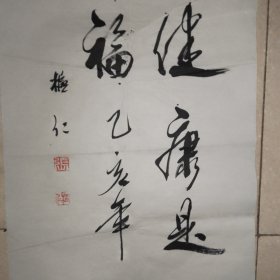 健康是
福
乙亥年
梅仁